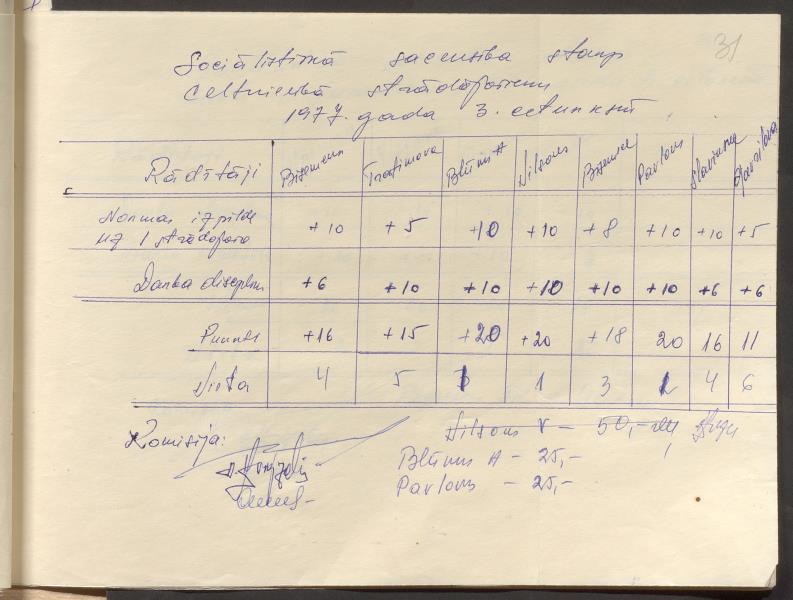 31
Sociālistiskā sacensība starp
celtniecībā strādājošiem
1977. gada 3. ceturksnī
Rādītāji Trofimova Blūms A Vilsons Pavlovs
Normas izpilde +10 +5 +10 +10 +8 +10 +10 +5
uz 1 strādājošo
Darba disciplīn +6 +10 +10 +10 +10 +10 +6 +6
Punkti +16 +15 +20 +20 +18 20 16 11
Vieta 4 5 1 1 3 4 6
Komisija:
Vilsons V – 50,-
Blūms A – 25,-
Pavlovs – 25,-